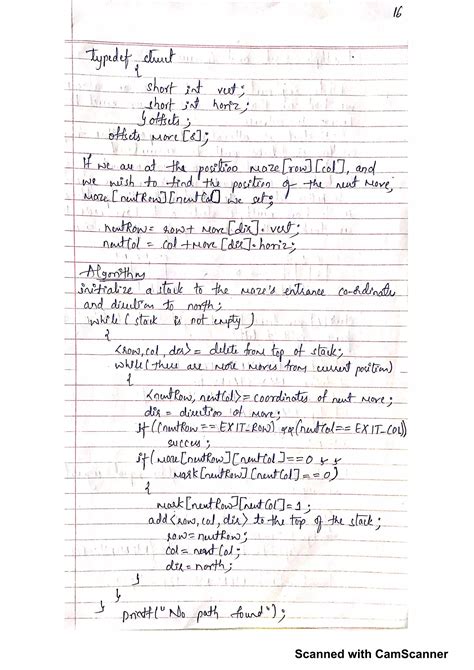 16
typedef struct
{
short int vert;
short int horiz;
} offsets;
offsets move[8];
If we are at the position maze[row][col], and
we wish to find the position of the next move,
maze[nextRow][nextCol] we set;
nextRow = row + move[dir].vert;
nextCol = col + move[dir].horiz;
Algorithm
initialize a stack to the maze's entrance co-ordinate
and direction to north;
while (stack is not empty)
{
<row, col, dir> = delete from top of stack;
while (there are more moves from current position)
{
<nextRow, nextCol> = coordinates of next move;
dir = direction of move;
if ((nextRow == EXIT_ROW) && (nextCol == EXIT_COL))
success;
if (maze[nextRow][nextCol] == 0 &&
mark[nextRow][nextCol] == 0)
{
mark[nextRow][nextCol] = 1;
add <row, col, dir> to the top of the stack;
row = nextRow;
col = nextCol;
dir = north;
}
}
}
printf("No path found");
Scanned with CamScanner